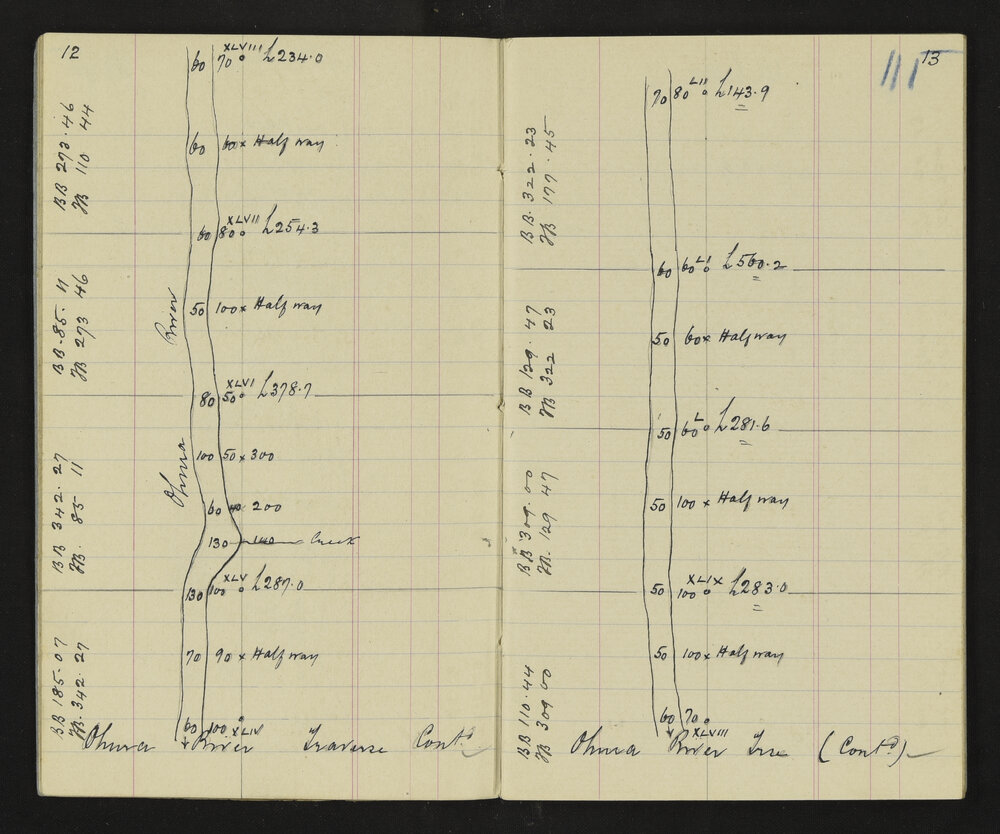 12
60 70 XLVIII L234.0
60 60 x Half way
60 80 XLVII L254.3
50 100 x Half way
80 50 XLVI L378.7
100 50 x 300
60 40 200
130 140 Creek
130 100 XLV L287.0
70 90 x Half way
60 100 XLIV
Ohura River
BB 273.46
FB 110 44
BB. 85. 11
FB 273 46
BB 342.27
FB. 85 11
BB 185.07
FB. 342.27
Ohura River Traverse Contd
13
111
70 80 LII L143.9
60 60 LI L560.2
50 60 x Half way
50 60 L L281.6
50 100 x Half way
50 100 XLIX L283.0
50 100 x Half way
60 70
XLVIII
BB. 322.23
FB 177.45
BB 129.47
FB 322 23
BB 309.00
FB. 129 47
BB 110.44
FB 309 00
Ohura River Trse (Contd)